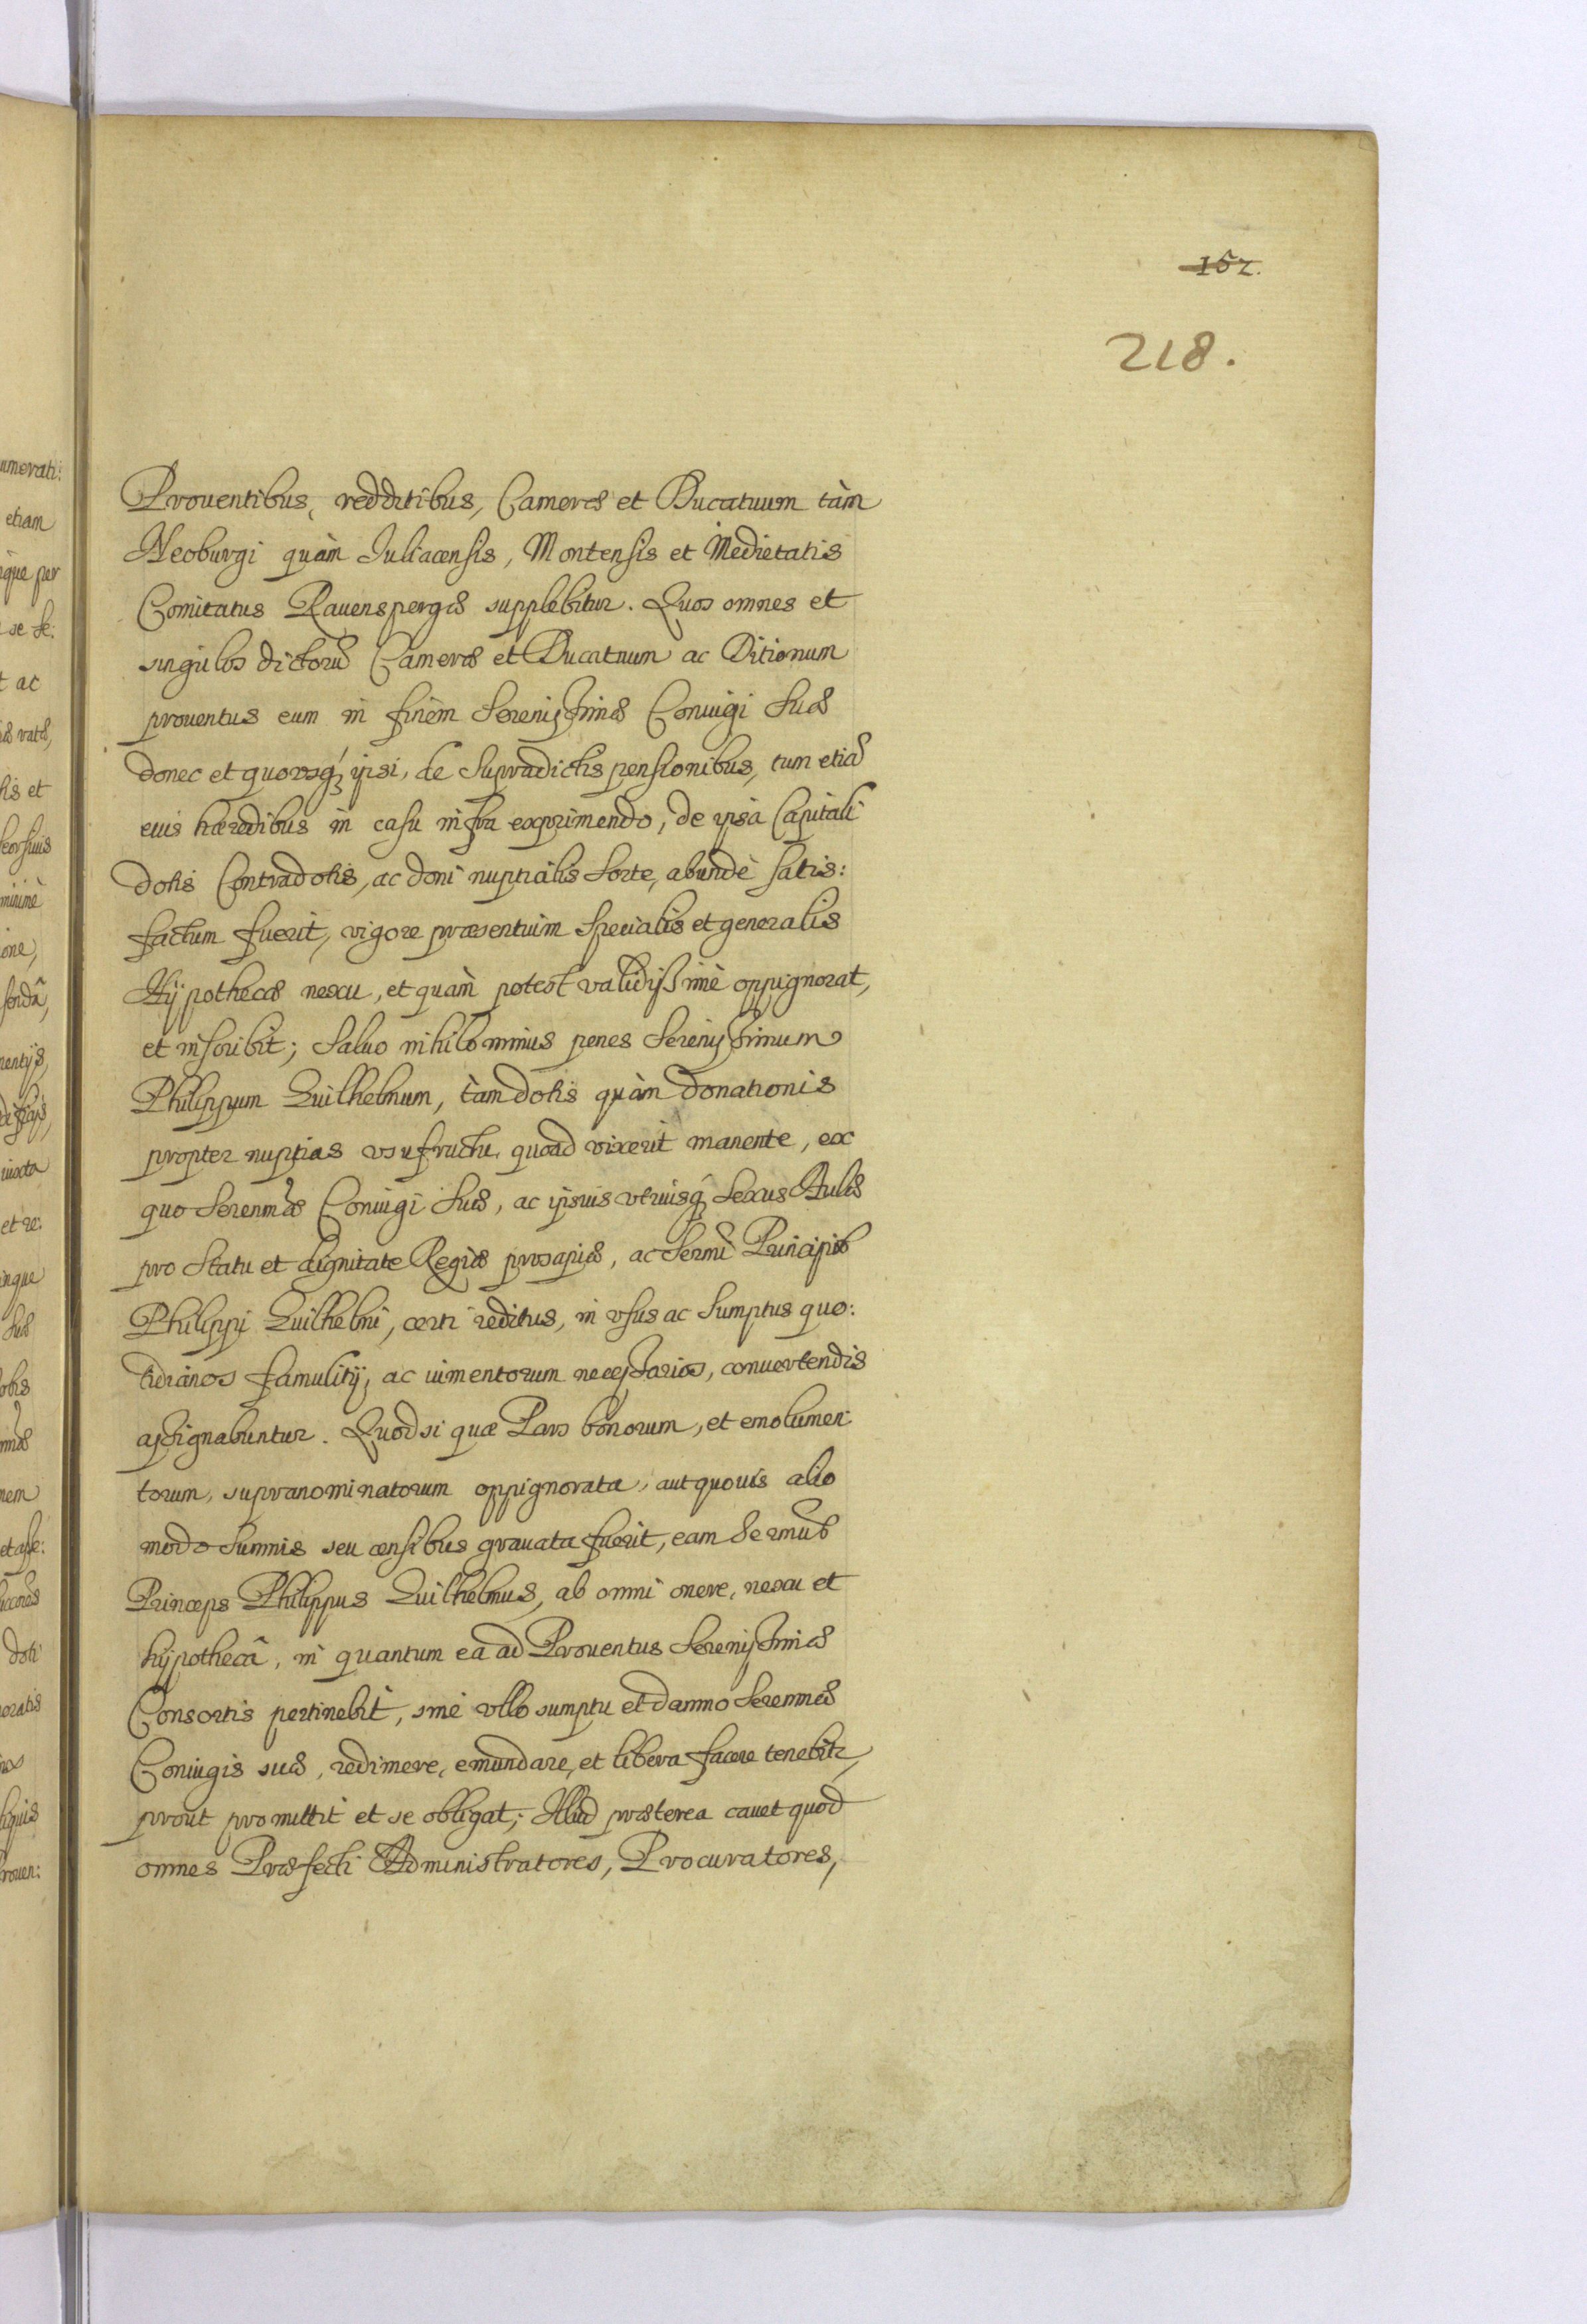 152.
218.
Prouentibus, redditibus, Cameræ et Ducatuum tàm
Neoburgi quàm Juliacensis, Montensis et Medietatis
Comitatus Rauenspergæ supplebitur. Quos omnes et
singulos dictorū Cameræ et Ducatuum ac Ditionum
prouentus eum in finem Serenissimæ Coniugi Suæ
donec et quovsq́ ipsi, de Supradictis pensionibus, tum etiā
euis hæredibus in casu infra exprimendo, de ipsa Capitali
dotis Contradotis, ac doni nuptialis Sorte, abundè satis:
factum fuerit, vigore præsentium Specialis et generalis
Hypothecæ nexu, et quàm potest validissimè oppignorat,
et inscribit; Saluo nihilominus penes Serenissimum
Philippum Guilhelmum, tàm dotis quàm donationis
propter nuptias vsufructu, quoad vixerit manente, ex
quo Serenmæ Coniugi Suæ, ac ipsius vtriusq́ Sexus Aulæ
pro Statu et dignitate Regiæ prosapiæ, ac Sermi Principis
Philippi Guilhelmi, certi reditus, in vsus ac Sumptus quo:
tidianos famulitij, ac iumentorum necessarios, conuertendis
assignabuntur. Quod si quæ Pars bonorum, et emolumen:
torum, supranominatorum oppignorata, aut quouis alio
modo Summis seu censibus grauata fuerit, eam Sermus
Princeps Philippus Guilhelmus, ab omni onere, nexu et
hypothecâ, in quantum ea ad Prouentus Serenissimæ
Consortis pertinebit, sine vllo sumptu et damno Serenmæ
Coniugis suæ, redimere, emundare, et libera facere tenebitr,
prout promittit et se obligat; Illud præterea cauet quod
omnes Præfecti Administratores, Procuratores,